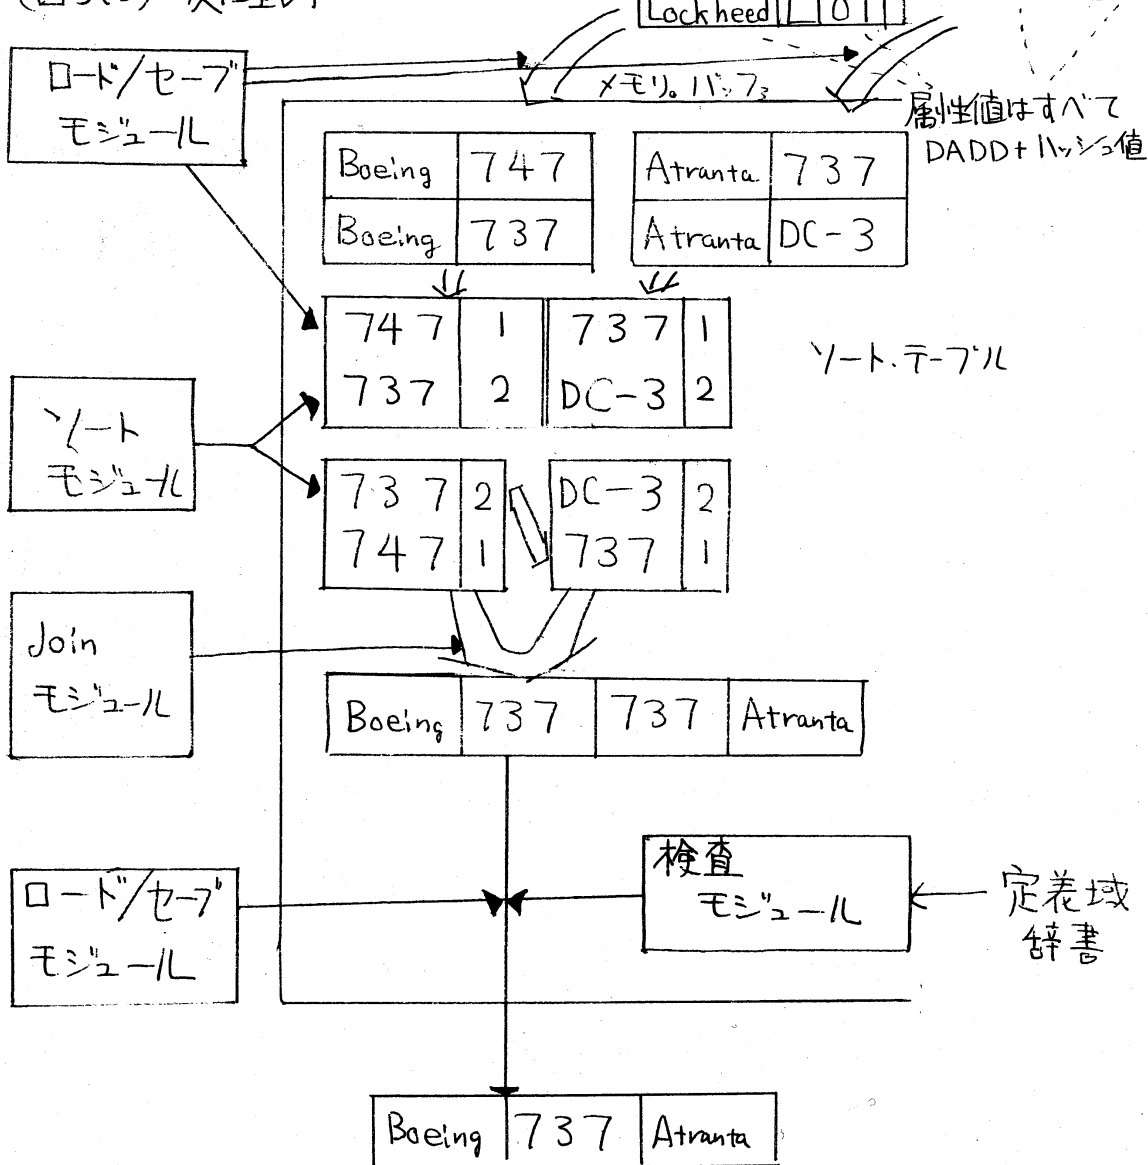 Lockheed L 011
ロード/セーブ
モジュール
メモリ。バッファ
属性値はすべて
DADD+ハッシュ値
Boeing 747
Boeing 737
Atranta 737
Atranta DC-3
747 1 737 1
737 2 DC-3 2
ソート・テーブル
ソート
モジュール
737 2 DC-3 2
747 1 737 1
Join
モジュール
Boeing 737 737 Atranta
ロード/セーブ
モジュール
検査
モジュール
定義域
辞書
Boeing 737 Atranta